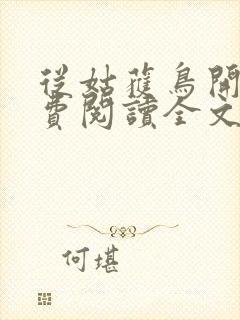 從姑獲鳥開
費閱讀全文
何堪